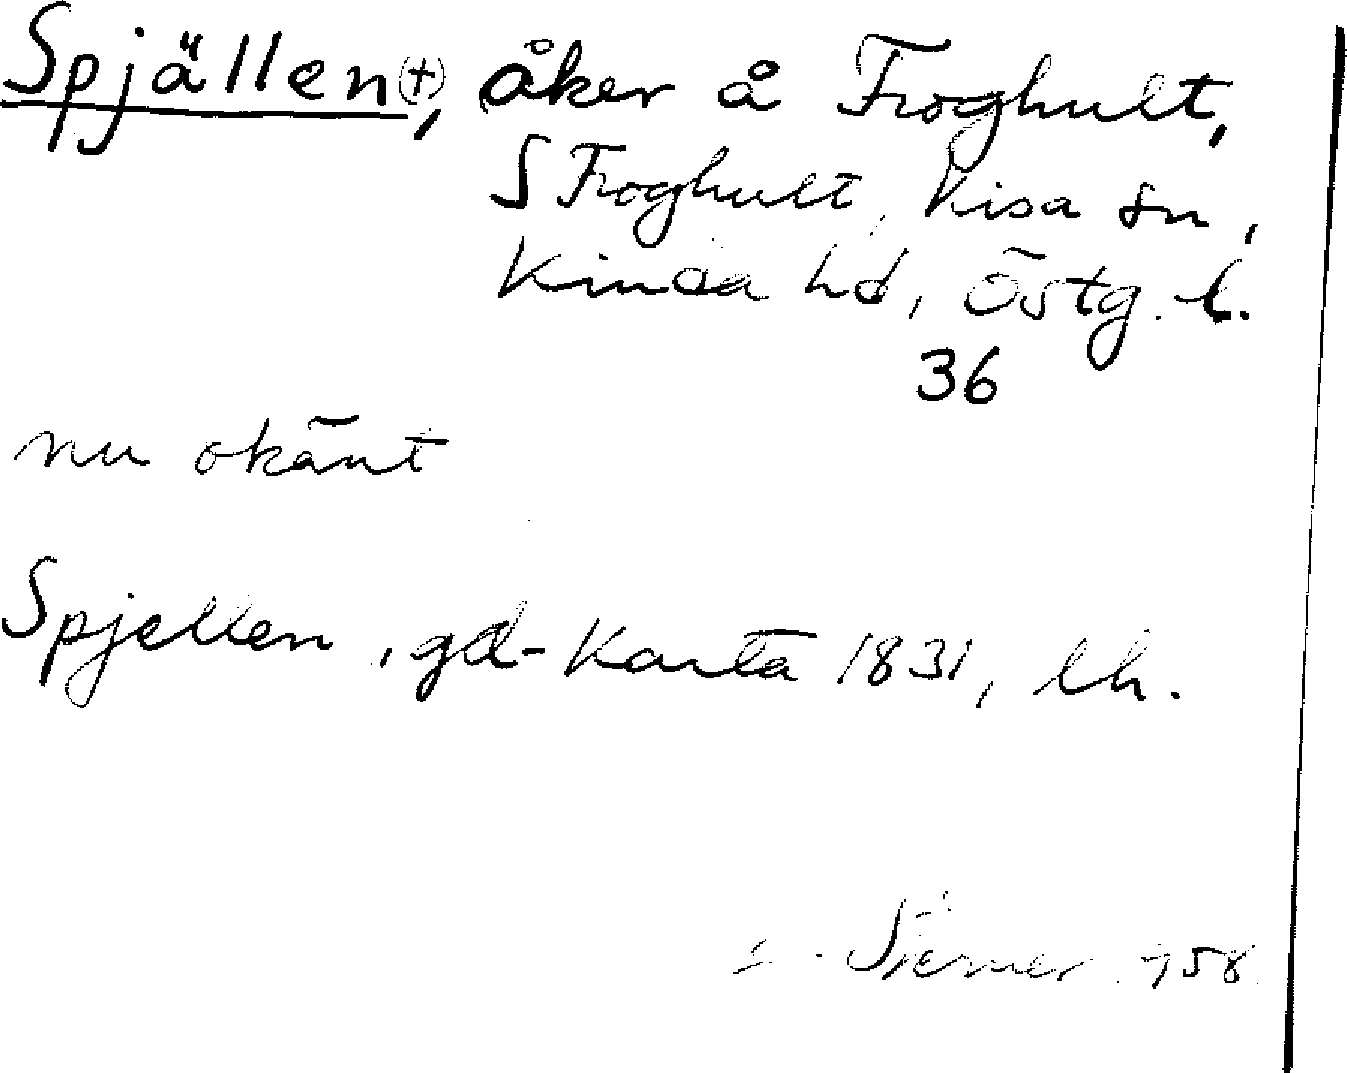 Spjällen(+), åker å Froghult,
S Froghult, Kisa sn,
Kinda hd, Östg. l.
36
nu okänt
Spjellen, gd-karta 1831, lh.